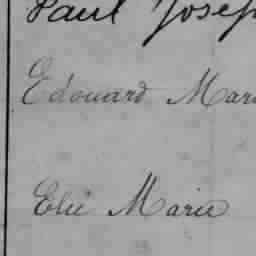 Paul Josep
Edouard Mari
Elie Marie